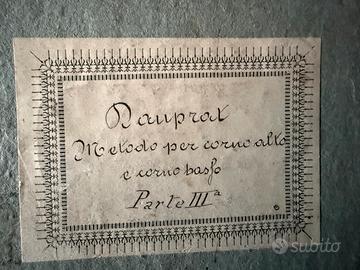 Dauprat
Metodo per corno alto
e corno basso
Parte IIIª
subito